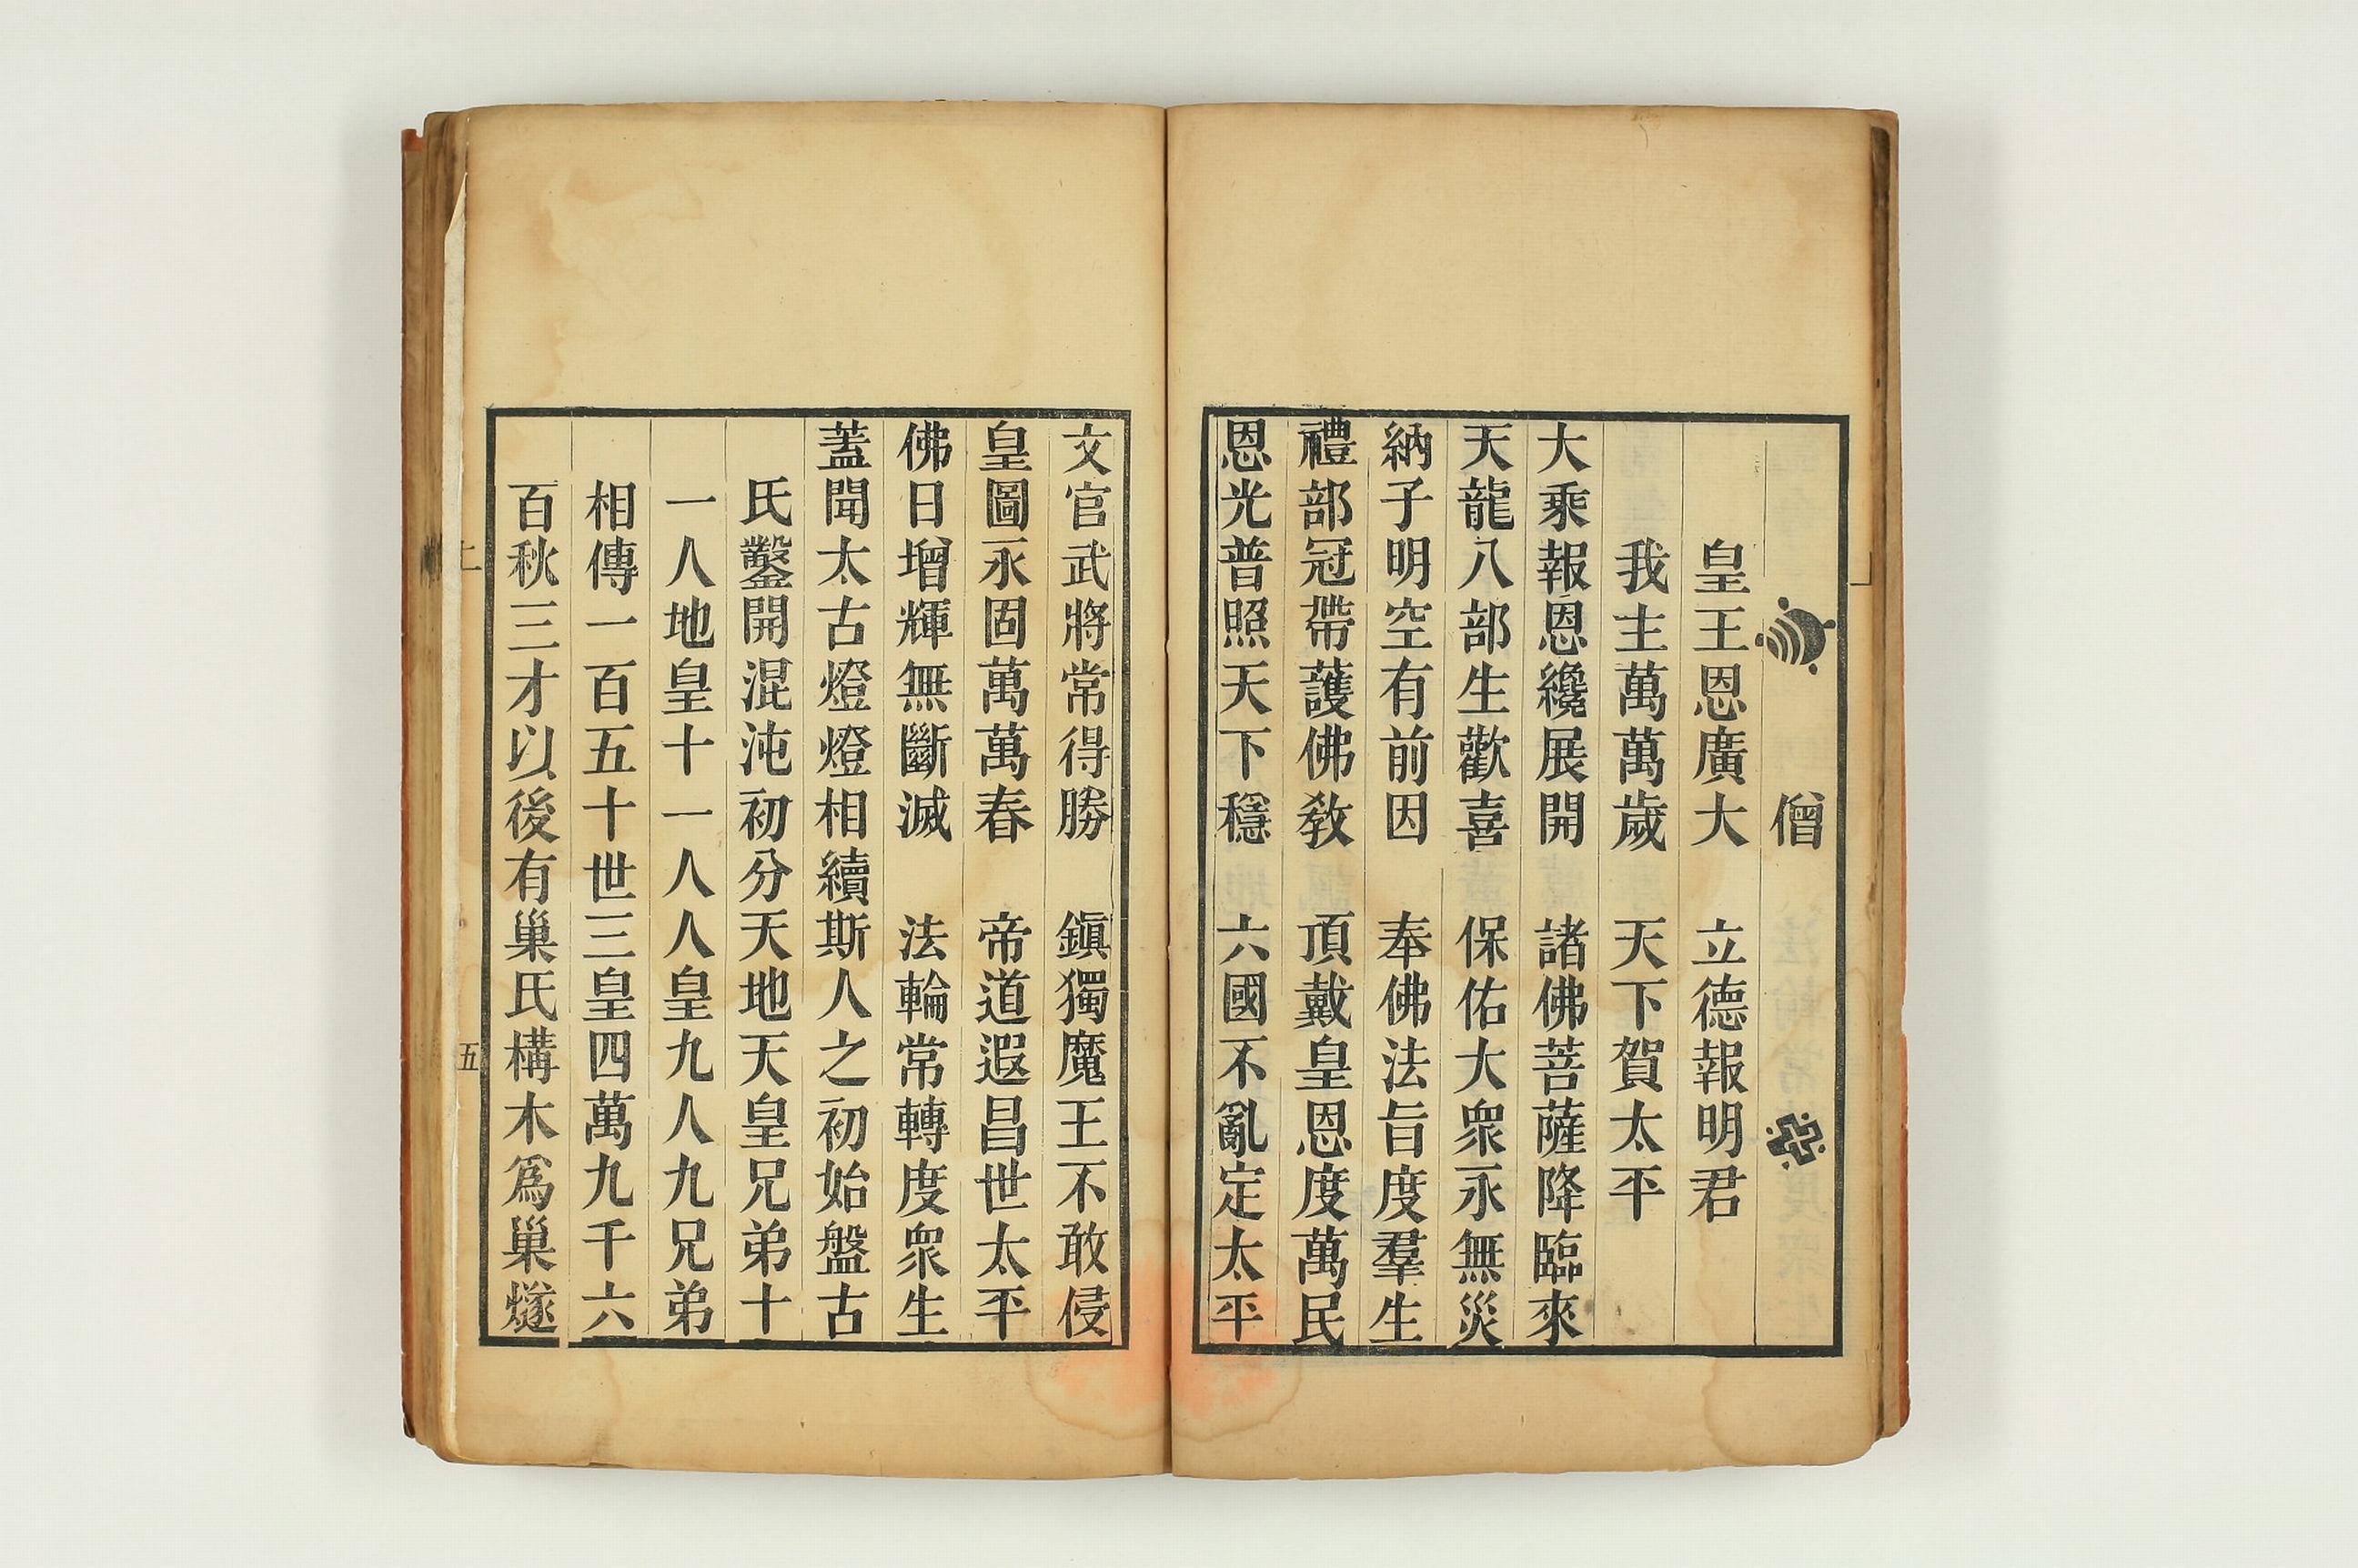 僧
皇王恩廣大　立德報明君
我主萬萬歲　天下賀太平
大乘報恩纔展開　諸佛菩薩降臨來
天龍八部生歡喜　保佑大眾永無災
納子明空有前因　奉佛法旨度羣生
禮部冠帶護佛教　頂戴皇恩度萬民
恩光普照天下穩　六國不亂定太平
文官武將常得勝　鎮獨魔王不敢侵
皇圖永固萬萬春　帝道遐昌世太平
佛日增輝無斷滅　法輪常轉度眾生
蓋聞太古燈燈相續斯人之初始盤古
氏鑿開混沌初分天地天皇兄弟十
一人地皇十一人人皇九人九兄弟
相傳一百五十世三皇四萬九千六
百秋三才以後有巢氏構木爲巢燧
上
五